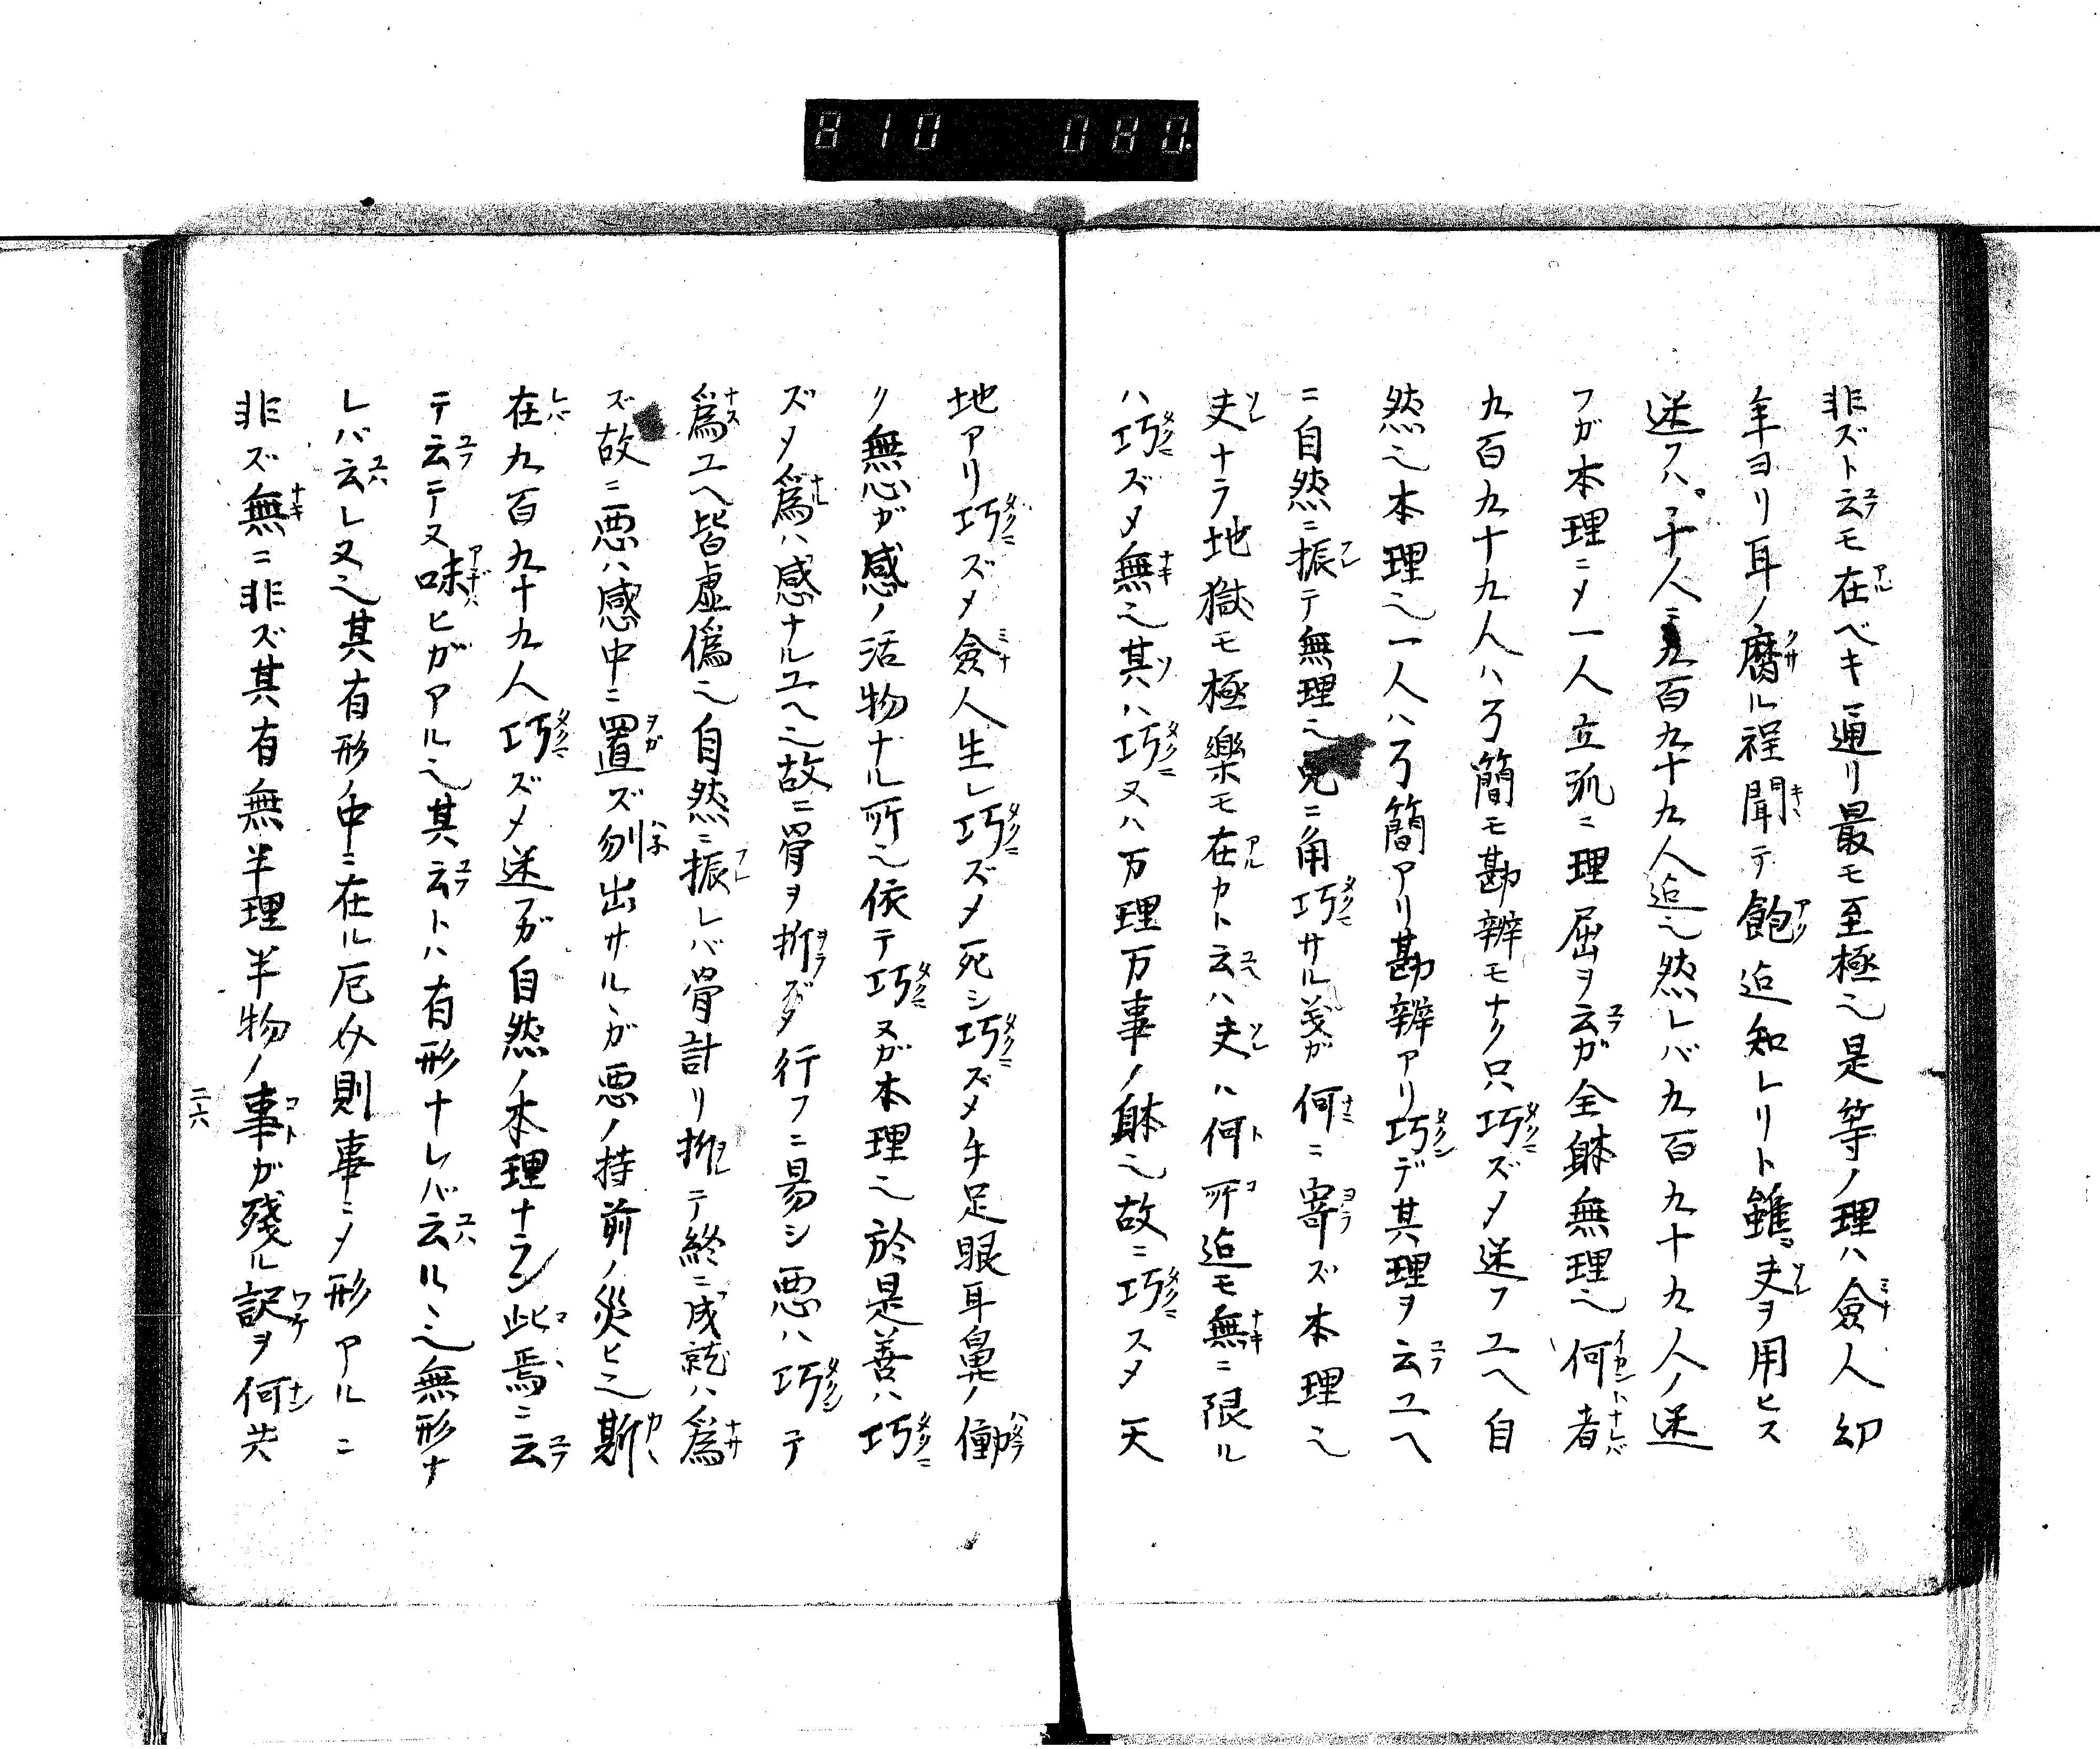 810 080.
非ズト云モ在ベキ通リ最モ至極也是等ノ理ハ僉人幼
年ヨリ耳ノ腐ル程聞テ飽迠知レリト雖夫ヲ用ヒス
迷フハ千人ニ九百九十九人迠也然レバ九百九十九人ノ迷
フガ本理ニメ一人立派ニ理屈ヲ云ガ全躰無理也何者
九百九十九人ハ了簡モ勘辨モナク只巧ズメ迷フユヘ自
然之本理也一人ハ了簡アリ勘辨アリ巧デ其理ヲ云ユヘ
ニ自然ニ振テ無理也兎ニ角巧サル義ガ何ニ寄ズ本理也
夫ナラ地獄モ極樂モ在カト云ヘハ夫ハ何所迠モ無ニ限ル
ハ巧ズメ無也其ハ巧ヌハ万理万事ノ躰也故ニ巧スメ天
地アリ巧ズメ僉人生レ巧ズメ死シ巧ズメ手足眼耳鼻ノ働
ク無心ガ感ノ活物ナル所也依テ巧ヌガ本理也於是善ハ巧
ズメ爲ハ感ナルユヘ也故ニ骨ヲ折ズメ行フニ昜シ悪ハ巧テ
爲ユヘ皆虚僞也自然ニ振レバ骨計リ折テ終ニ成就ハ爲
ズ故ニ悪ハ感中ニ置ズ刎出サルヽガ悪ノ持前ノ災ヒ也斯
在九百九十九人巧ズメ迷フガ自然ノ本理ナラン此焉ニ云
テ云テヌ味ヒガアル也其云トハ有形ナレバ云ルヽ也無形ナ
レバ云レヌ也其有形ノ中ニ在ル尼メ則事ニメ形アルニ
非ズ無ニ非ズ其有無半理半物ノ事ガ殘ル訳ヲ何共
二六